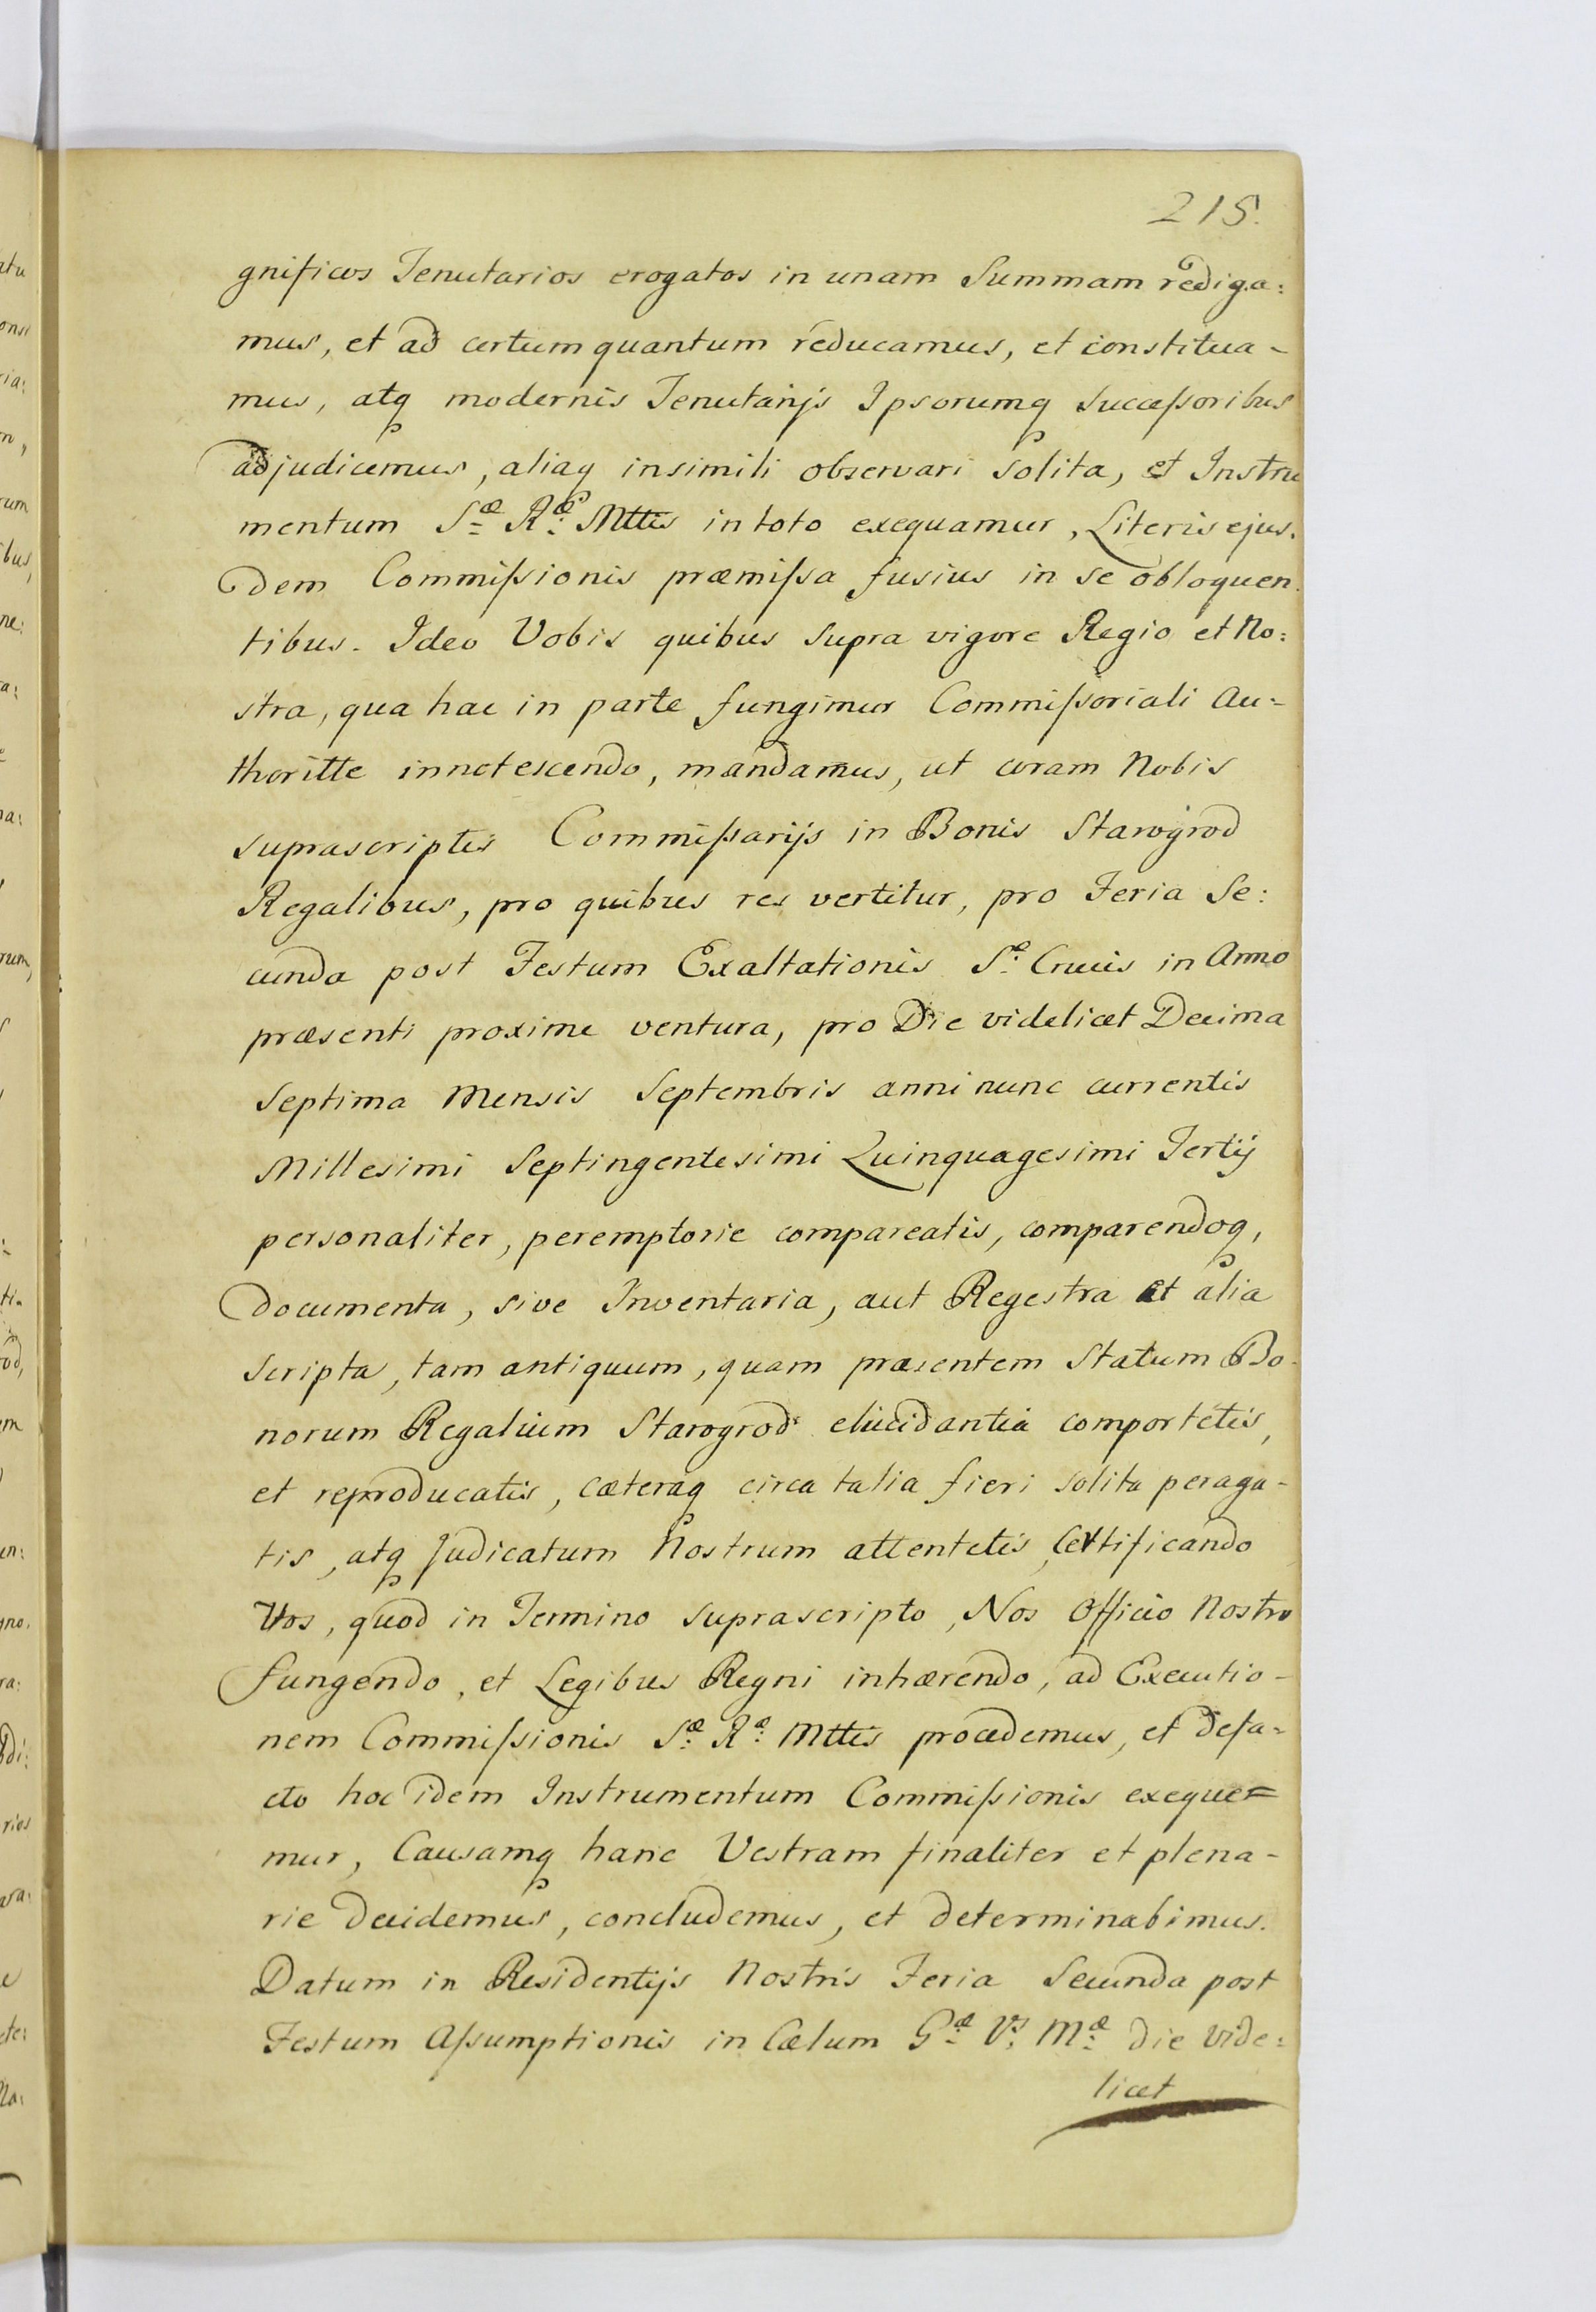 215.
gnificos Tenutarios erogatos in unam Summam rediga:
mus, et ad certum quantum reducamus, et constitua-
mus, atq modernis Tenutarijs Ipsorumq Successoribus
adjudicemus, aliaq in simili observari solita, et Instru
mentum Sæ Ræ Mttis in toto exequamur, Literis ejus.
dem Commissionis præmissa fusius in se obloquen.
tibus. Ideo Vobis quibus supra vigore Regio et No:
stra, qua hac in parte fungimur Commissoriali Au-
thoritte innotescendo, mandamus, ut coram Nobis
suprascriptis Commissarijs in Bonis Starogrod
Regalibus, pro quibus res vertitur, pro Feria Se:
cunda post Festum Exaltationis Sæ Crucis in Anno
præsenti proxime ventura, pro Die videlicet Decima
Septima Mensis Septembris anni nunc currentis
Millesimi Septingentesimi Quinquagesimi Tertij
personaliter, peremptorie compareatis, comparendoq,
documenta, sive Inventaria, aut Regestra et alia
scripta, tam antiquum, quam præsentem Statum Bo-
norum Regalium Starogrod elucidantia comportetis,
et reproducatis, cæteraq circa talia fieri solita peraga-
tis, atq Judicatum Nostrum attentetis, Certificando
Vos, quod in Termino suprascripto, Nos Officio Nostro
fungendo, et Legibus Regni inhærendo, ad Executio-
nem Commissionis Sæ Ræ Mttis procedemus, et defa-
cto hoc idem Instrumentum Commissionis exeque=
mur, Causamq hanc Vestram finaliter et plena-
rie decidemus, concludemus, et determinabimus.
Datum in Residentijs Nostris Feria Secunda post
Festum Assumptionis in Cælum Gæ Vs Mæ die vide:
licet